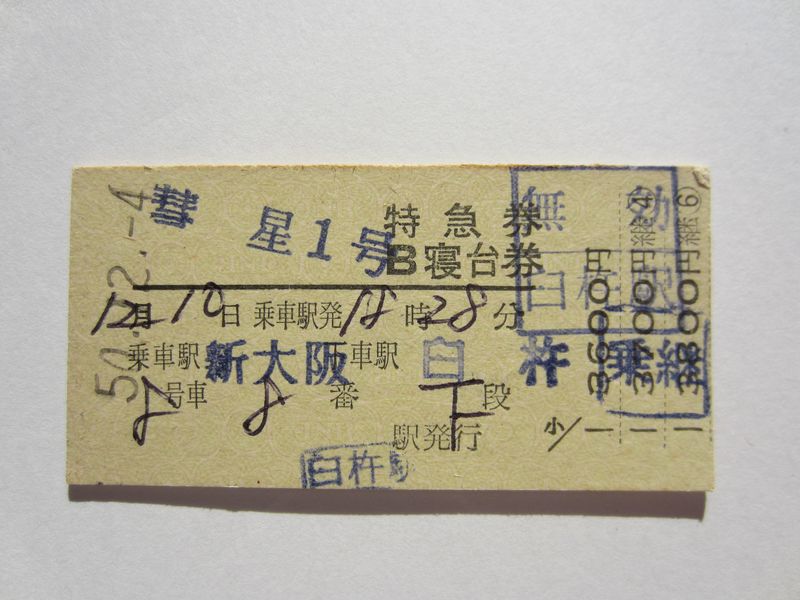 彗星1号 特急券
B寝台券
無効
臼杵駅
12月10日 乗車駅発 18時28分
乗車駅 新大阪 下車駅 臼杵
号車 8番 下段
駅発行
臼杵駅
乗継
小/
3600円
3700円(継4)
3800円(継6)